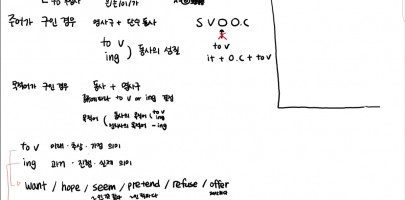 주어가 구인 경우 명사구 + 단수동사 S V O O.C
to v
ing ) 동사의 성질
to v
it + O.C + to v
목적어가 구인 경우 동사 + 명사구
to v or ing 결정
목적어 ( 동사의 목적어 ( to v ing
전치사의 목적어 - ing
to v 미래·추상·가정 의미
ing 과거·진행·실제 의미
want / hope / seem / pretend / refuse / offer